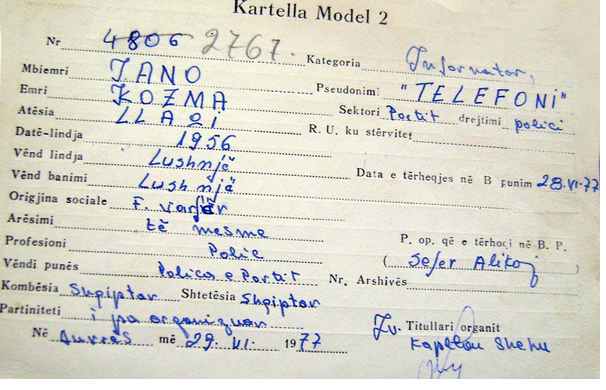 Kartella Model 2
Nr 4806 2767. Kategoria Informator,
Mbiemri JANO Pseudonim: "TELEFONI"
Emri KOZMA Sektori Portit drejtimi polici
Atësia LLAQI R. U. ku stërvitet
Datë-lindja 1956
Vënd lindja Lushnjë Data e tërheqjes në B punim 28.VI.77
Vënd banimi Lushnjë
Origjina sociale F. varfër
Arësimi të mesme P. op. që e tërhoqi në B. P.
Profesioni Polic (Sefer Alikoj)
Vëndi punës Polica e Portit Nr. Arshivës
Kombësia Shqiptar Shtetësia Shqiptar
Partiniteti i pa organizuar Zv. Titullari organit
Në Durrës më 29.VI. 1977 Kapeten Shehu